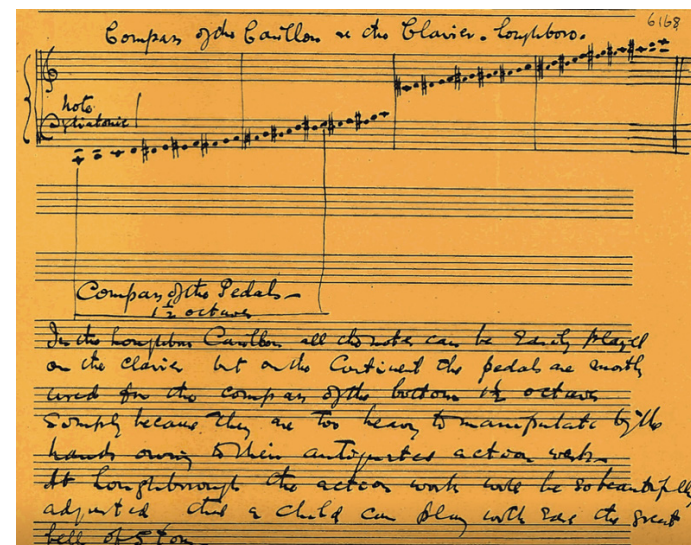 6168
Compass of the Carillon at the Clavier. Loughboro.
note
diatonic
Compass of the Pedals
1½ octaves
In the Loughboro Carillon all the notes can be easily played
on the clavier but on the Continent the pedals are mostly
used for the compass of the bottom 1½ octaves
Simply because they are too heavy to manipulate by the
hands owing to their antiquated action work
At Loughborough the action work will be so beautifully
adjusted that a child can play with ease the great
bell of 5 tons.